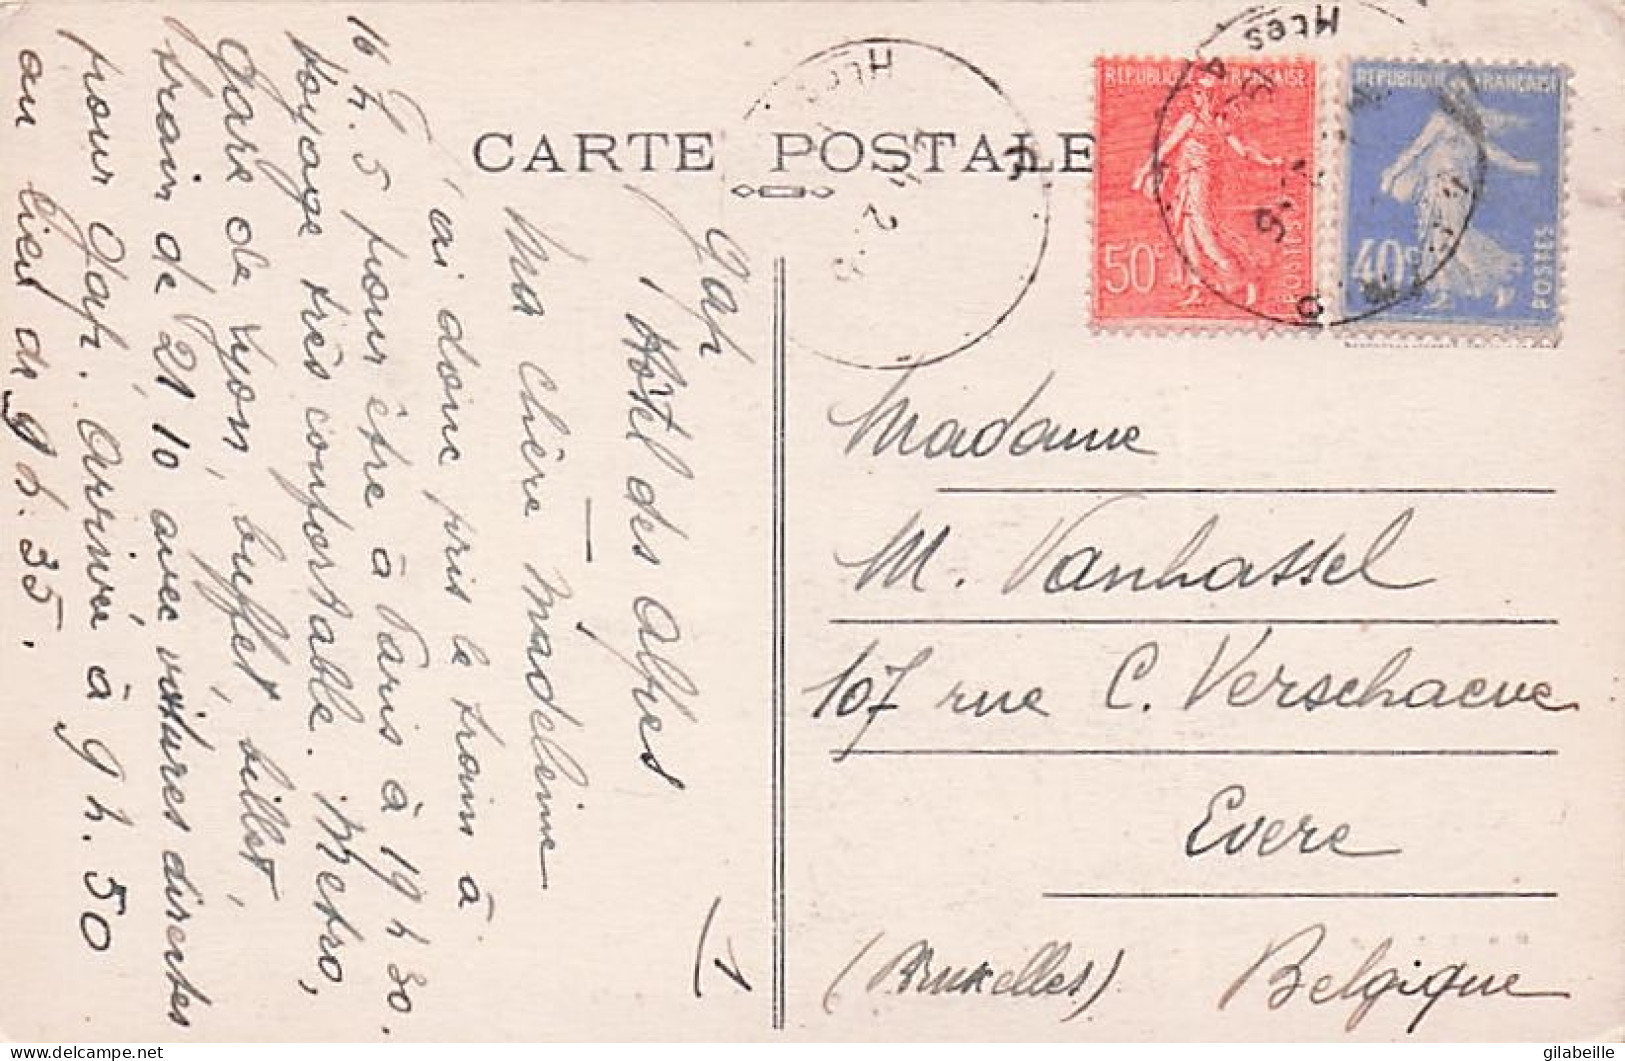 CARTE POSTALE
REPUBLIQUE FRANÇAISE
50c
POSTES
REPUBLIQUE FRANÇAISE
40c
POSTES
Htes
Gap
Hôtel des Alpes
Ma Chère Madeleine
J'ai donc pris le train à
16 h. 5 pour être à Paris à 19 h 30.
Voyage très confortable. Métro,
Gare de Lyon, buffet, billet,
train de 21 10 avec voitures directes
pour Gap. Arrivée à 9 h. 50
au lieu de 9 h. 35.
1
Madame
M. Vanhassel
107 rue C. Verschaeve
Evere
(Bruxelles) Belgique
delcampe.net
gilabeille